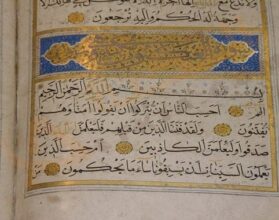 وجهه له الحكم وإليه ترجعون
بسم الله الرحمن الرحيم
الم أحسب الناس أن يتركوا أن يقولوا آمنا وهم
لا يفتنون ولقد فتنا الذين من قبلهم فليعلمن الله الذين
صدقوا وليعلمن الكاذبين أم حسب الذين
يعملون السيئات أن يسبقونا ساء ما يحكمون